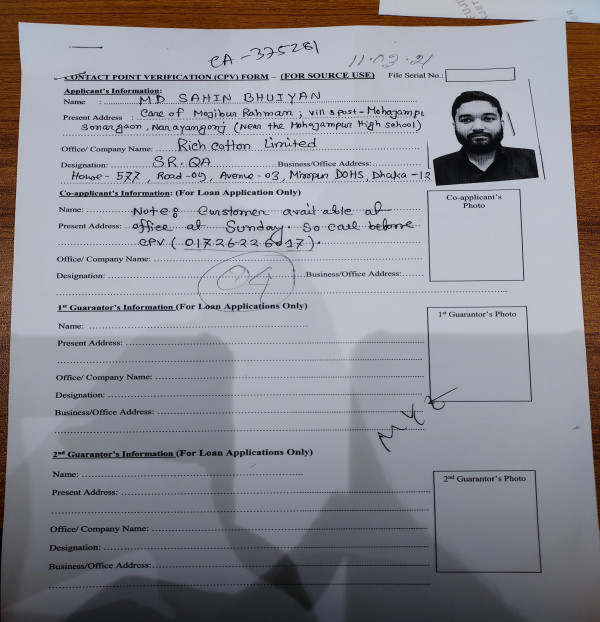 CA-375281
11.03.21
CONTACT POINT VERIFICATION (CPV) FORM – (FOR SOURCE USE) File Serial No.:
Applicant's Information:
Name : MD SAHIN BHUIYAN
Present Address : Care of Mojibur Rahman; vill & post-Mohajampur
Sonargaon, Narayangonj (Near the Mohajampur High school)
Office/ Company Name: Rich Cotton Limited
Designation: SR. QA Business/Office Address:
House-577, Road-09, Avenue-03, Mirpur DOHS, Dhaka-12
Co-applicant's Information: (For Loan Application Only)
Co-applicant's
Photo
Name: Note: Customer available at
Present Address: office at Sunday. So call before
CPV (01726226017).
Office/ Company Name:
04
Designation: Business/Office Address:
1st Guarantor's Information (For Loan Applications Only)
1st Guarantor's Photo
Name:
Present Address:
Office/ Company Name:
Designation:
Business/Office Address:
2nd Guarantor's Information (For Loan Applications Only)
Name:
2nd Guarantor's Photo
Present Address:
Office/ Company Name:
Designation:
Business/Office Address: